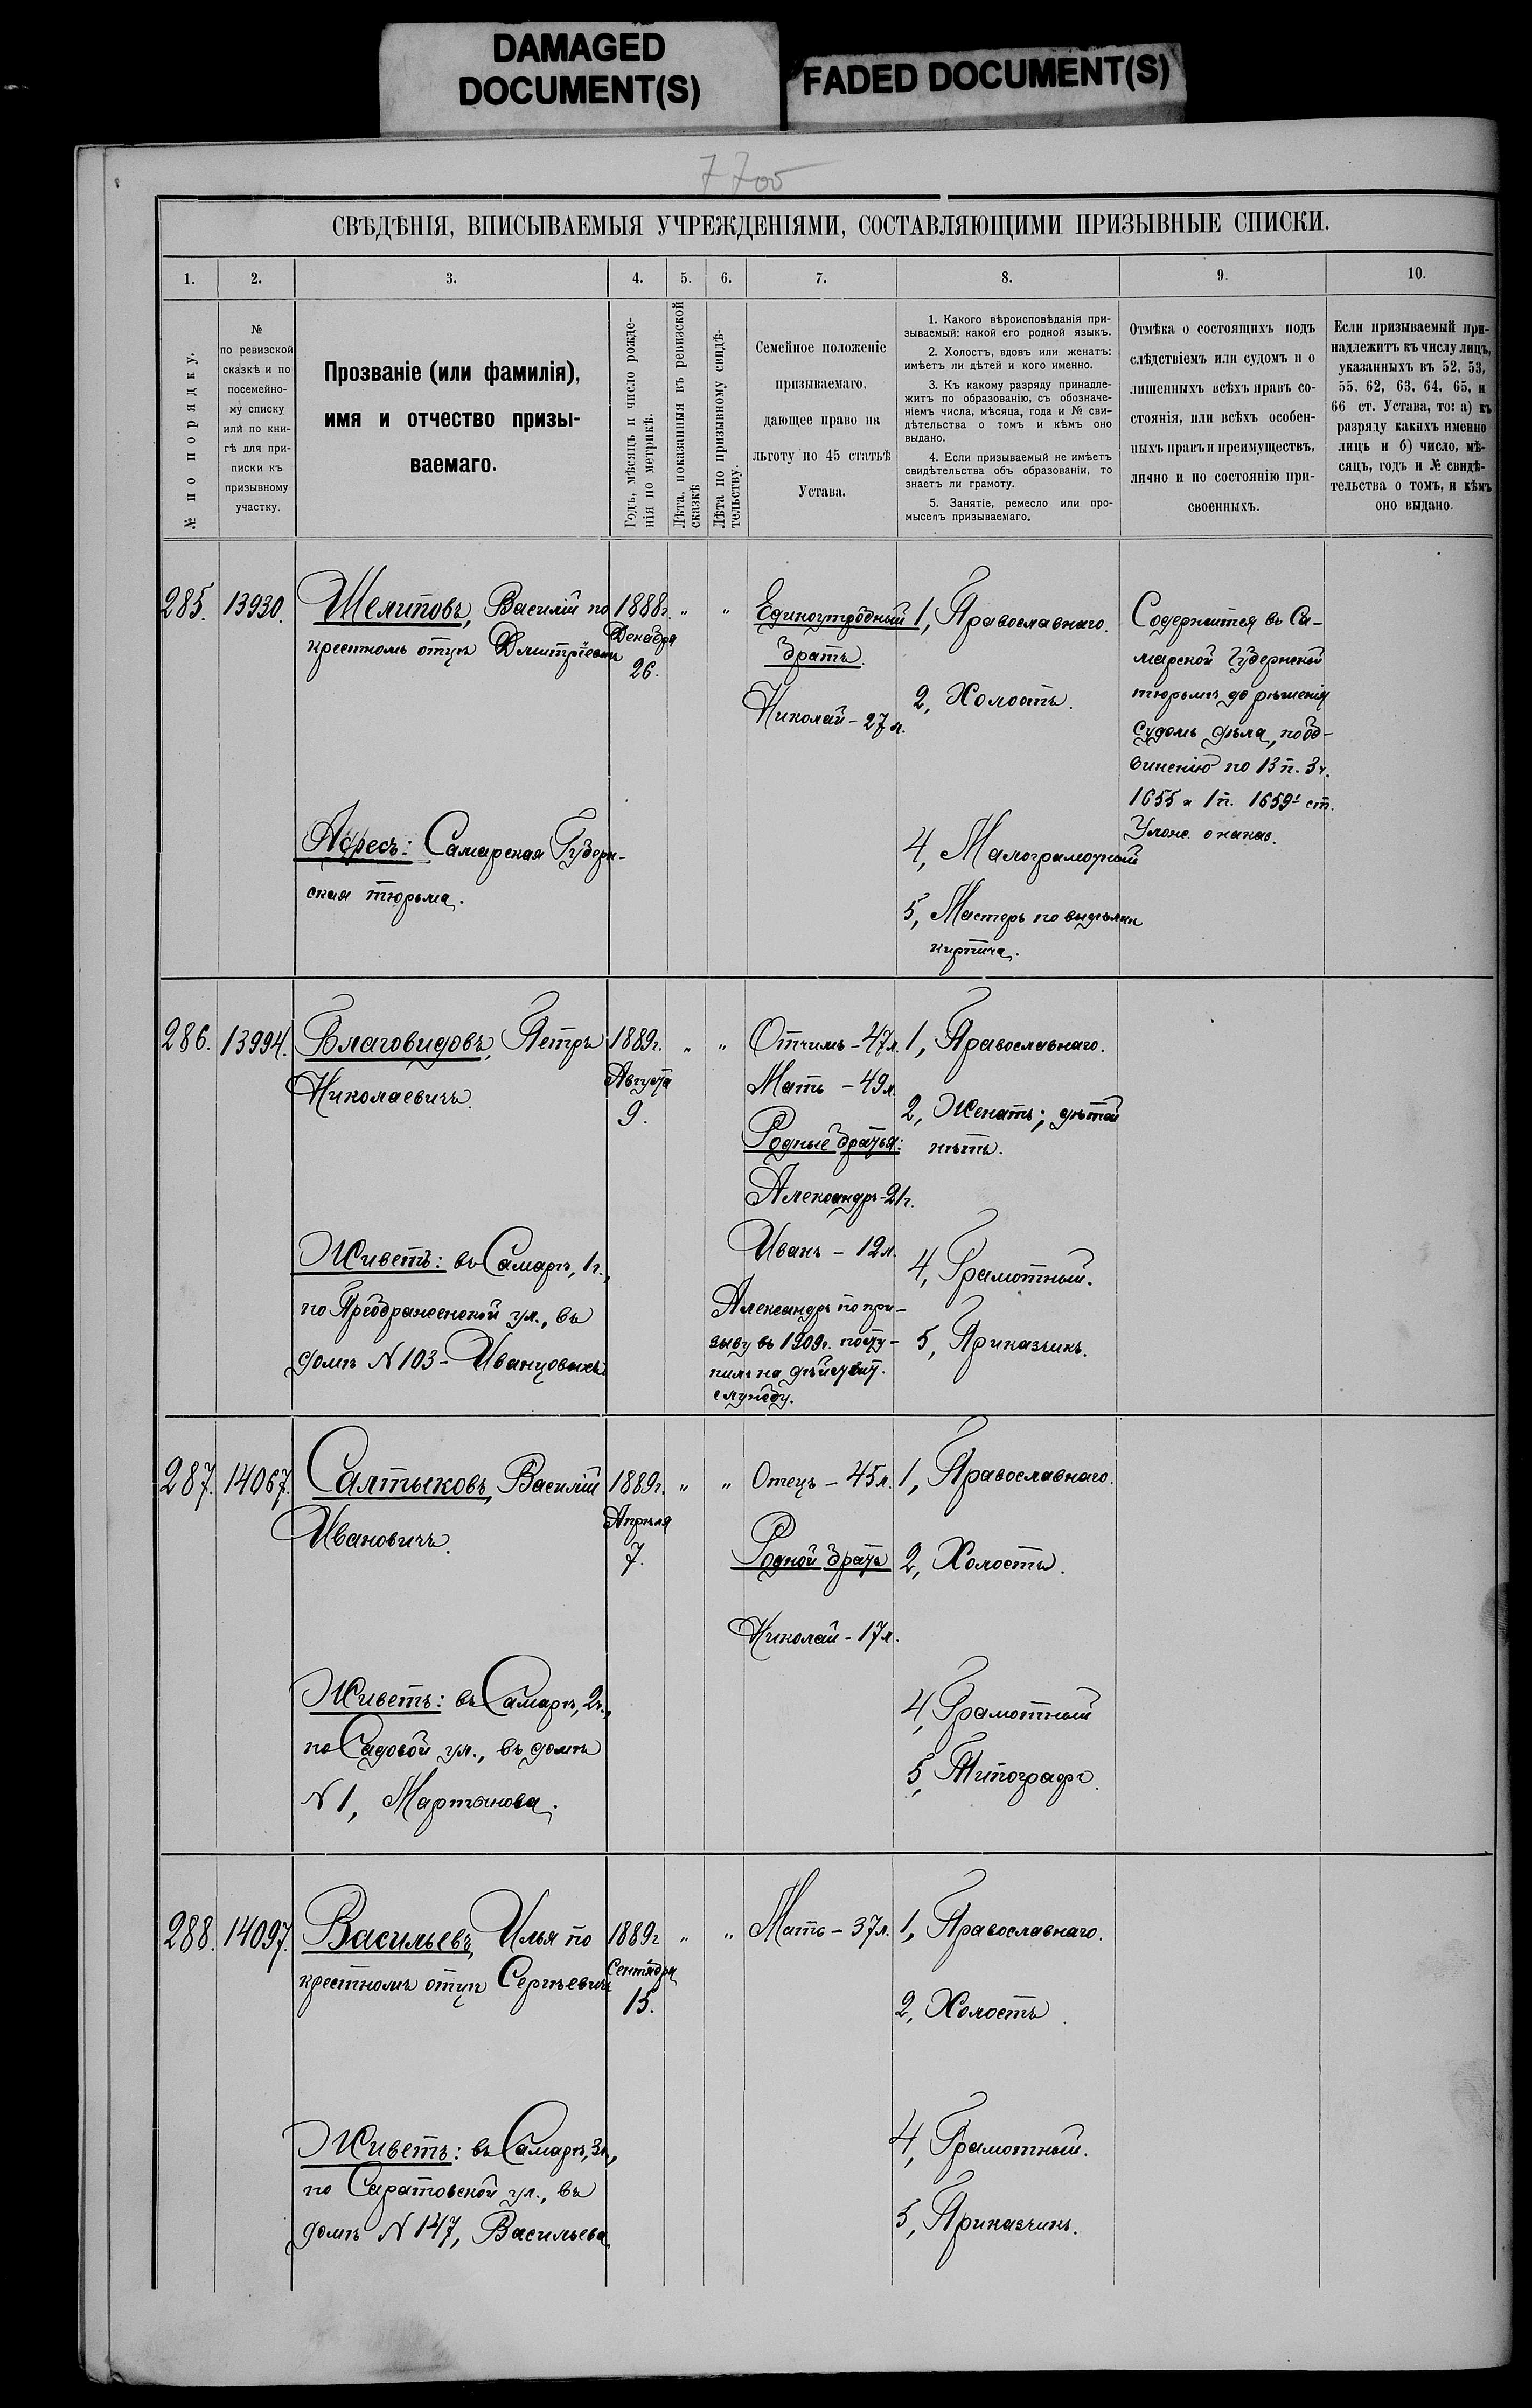 DAMAGED
DOCUMENT(S)
FADED DOCUMENT(S)
7700
СВѢДѢНІЯ, ВПИСЫВАЕМЫЯ УЧРЕЖДЕНІЯМИ, СОСТАВЛЯЮЩИМИ ПРИЗЫВНЫЕ СПИСКИ.
1. 2. 3. 4. 5. 6. 7. 8. 9. 10.
№ по порядку.
№
по ревизской
сказкѣ и по
посемейно-
му списку
или по кни-
гѣ для при-
писки къ
призывному
участку.
Прозваніе (или фамилія),
имя и отчество призы-
ваемаго.
Годъ, мѣсяцъ и число рожде-
нія по метрикѣ.
Лѣта, показанныя въ ревизской
сказкѣ
Лѣта по призывному свидѣ-
тельству.
Семейное положеніе
призываемаго,
дающее право на
льготу по 45 статьѣ
Устава.
1. Какого вѣроисповѣданія при-
зываемый: какой его родной языкъ.
2. Холостъ, вдовъ или женатъ:
имѣетъ ли дѣтей и кого именно.
3. Къ какому разряду принадле-
житъ по образованію, съ обозначе-
ніемъ числа, мѣсяца, года и № сви-
дѣтельства о томъ и кѣмъ оно
выдано.
4. Если призываемый не имѣетъ
свидѣтельства объ образованіи, то
знаетъ ли грамоту.
5. Занятіе, ремесло или про-
мыселъ призываемаго.
Отмѣка о состоящихъ подъ
слѣдствіемъ или судомъ и о
лишенныхъ всѣхъ правъ со-
стоянія, или всѣхъ особен-
ныхъ правъ и преимуществъ,
лично и по состоянію при-
своенныхъ.
Если призываемый при-
надлежитъ къ числу лицъ,
указанныхъ въ 52, 53,
55, 62, 63, 64, 65, и
66 ст. Устава, то: а) къ
разряду какихъ именно
лицъ и б) число, мѣ-
сяцъ, годъ и № свидѣ-
тельства о томъ, и кѣмъ
оно выдано.
285. 13930. Шелиповъ, Василій по
крестномъ отцѣ Дмитріевичъ
Адресъ: Самарская Губерн-
ская тюрьма.
1888г.
Декабря
26.
" "
Единоутробный
братъ.
Николай - 27 л.
1, Православнаго.
2, Холостъ.
4, Малограмотный
5, Мастеръ по выдѣлкѣ
кирпича.
Содержится въ Са-
марской Губернской
тюрьмѣ до рѣшенія
судомъ дѣла, по об-
виненію по 13 п. 3 ч.
1655 и 1 п. 1659¹ ст.
Улож. о наказ.
286. 13994. Благовидовъ, Петръ
Николаевичъ.
Живетъ: въ Самарѣ, 1 ч.,
по Преображенской ул., въ
домѣ N 103 - Иванцовыхъ
1889г.
Августа
9.
" "
Отчимъ - 47 л.
Мать - 49 л.
Родные братья:
Александръ - 21 г.
Иванъ - 12 л.
Александръ по при-
зыву въ 1909 г. посту-
пилъ на дѣйствит.
службу.
1, Православнаго.
2, Женатъ; дѣтей
нѣтъ.
4, Грамотный.
5, Приказчикъ.
287. 14067. Салтыковъ, Василій
Ивановичъ.
Живетъ: въ Самарѣ, 2 ч.,
по Садовой ул., въ домѣ
N 1, Мартьянова.
1889г.
Апрѣля
7.
" "
Отецъ - 45 л.
Родной братъ
Николай - 17 л.
1, Православнаго.
2, Холостъ.
4, Грамотный
5, Типографъ.
288. 14097. Васильевъ, Илья по
крестномъ отцѣ Сергѣевичъ
Живетъ: въ Самарѣ, 3 ч.,
по Саратовской ул., въ
домѣ N 147, Васильева
1889г
Сентября
15.
" "
Мать - 37 л.
1, Православнаго.
2, Холостъ.
4, Грамотный.
5, Приказчикъ.